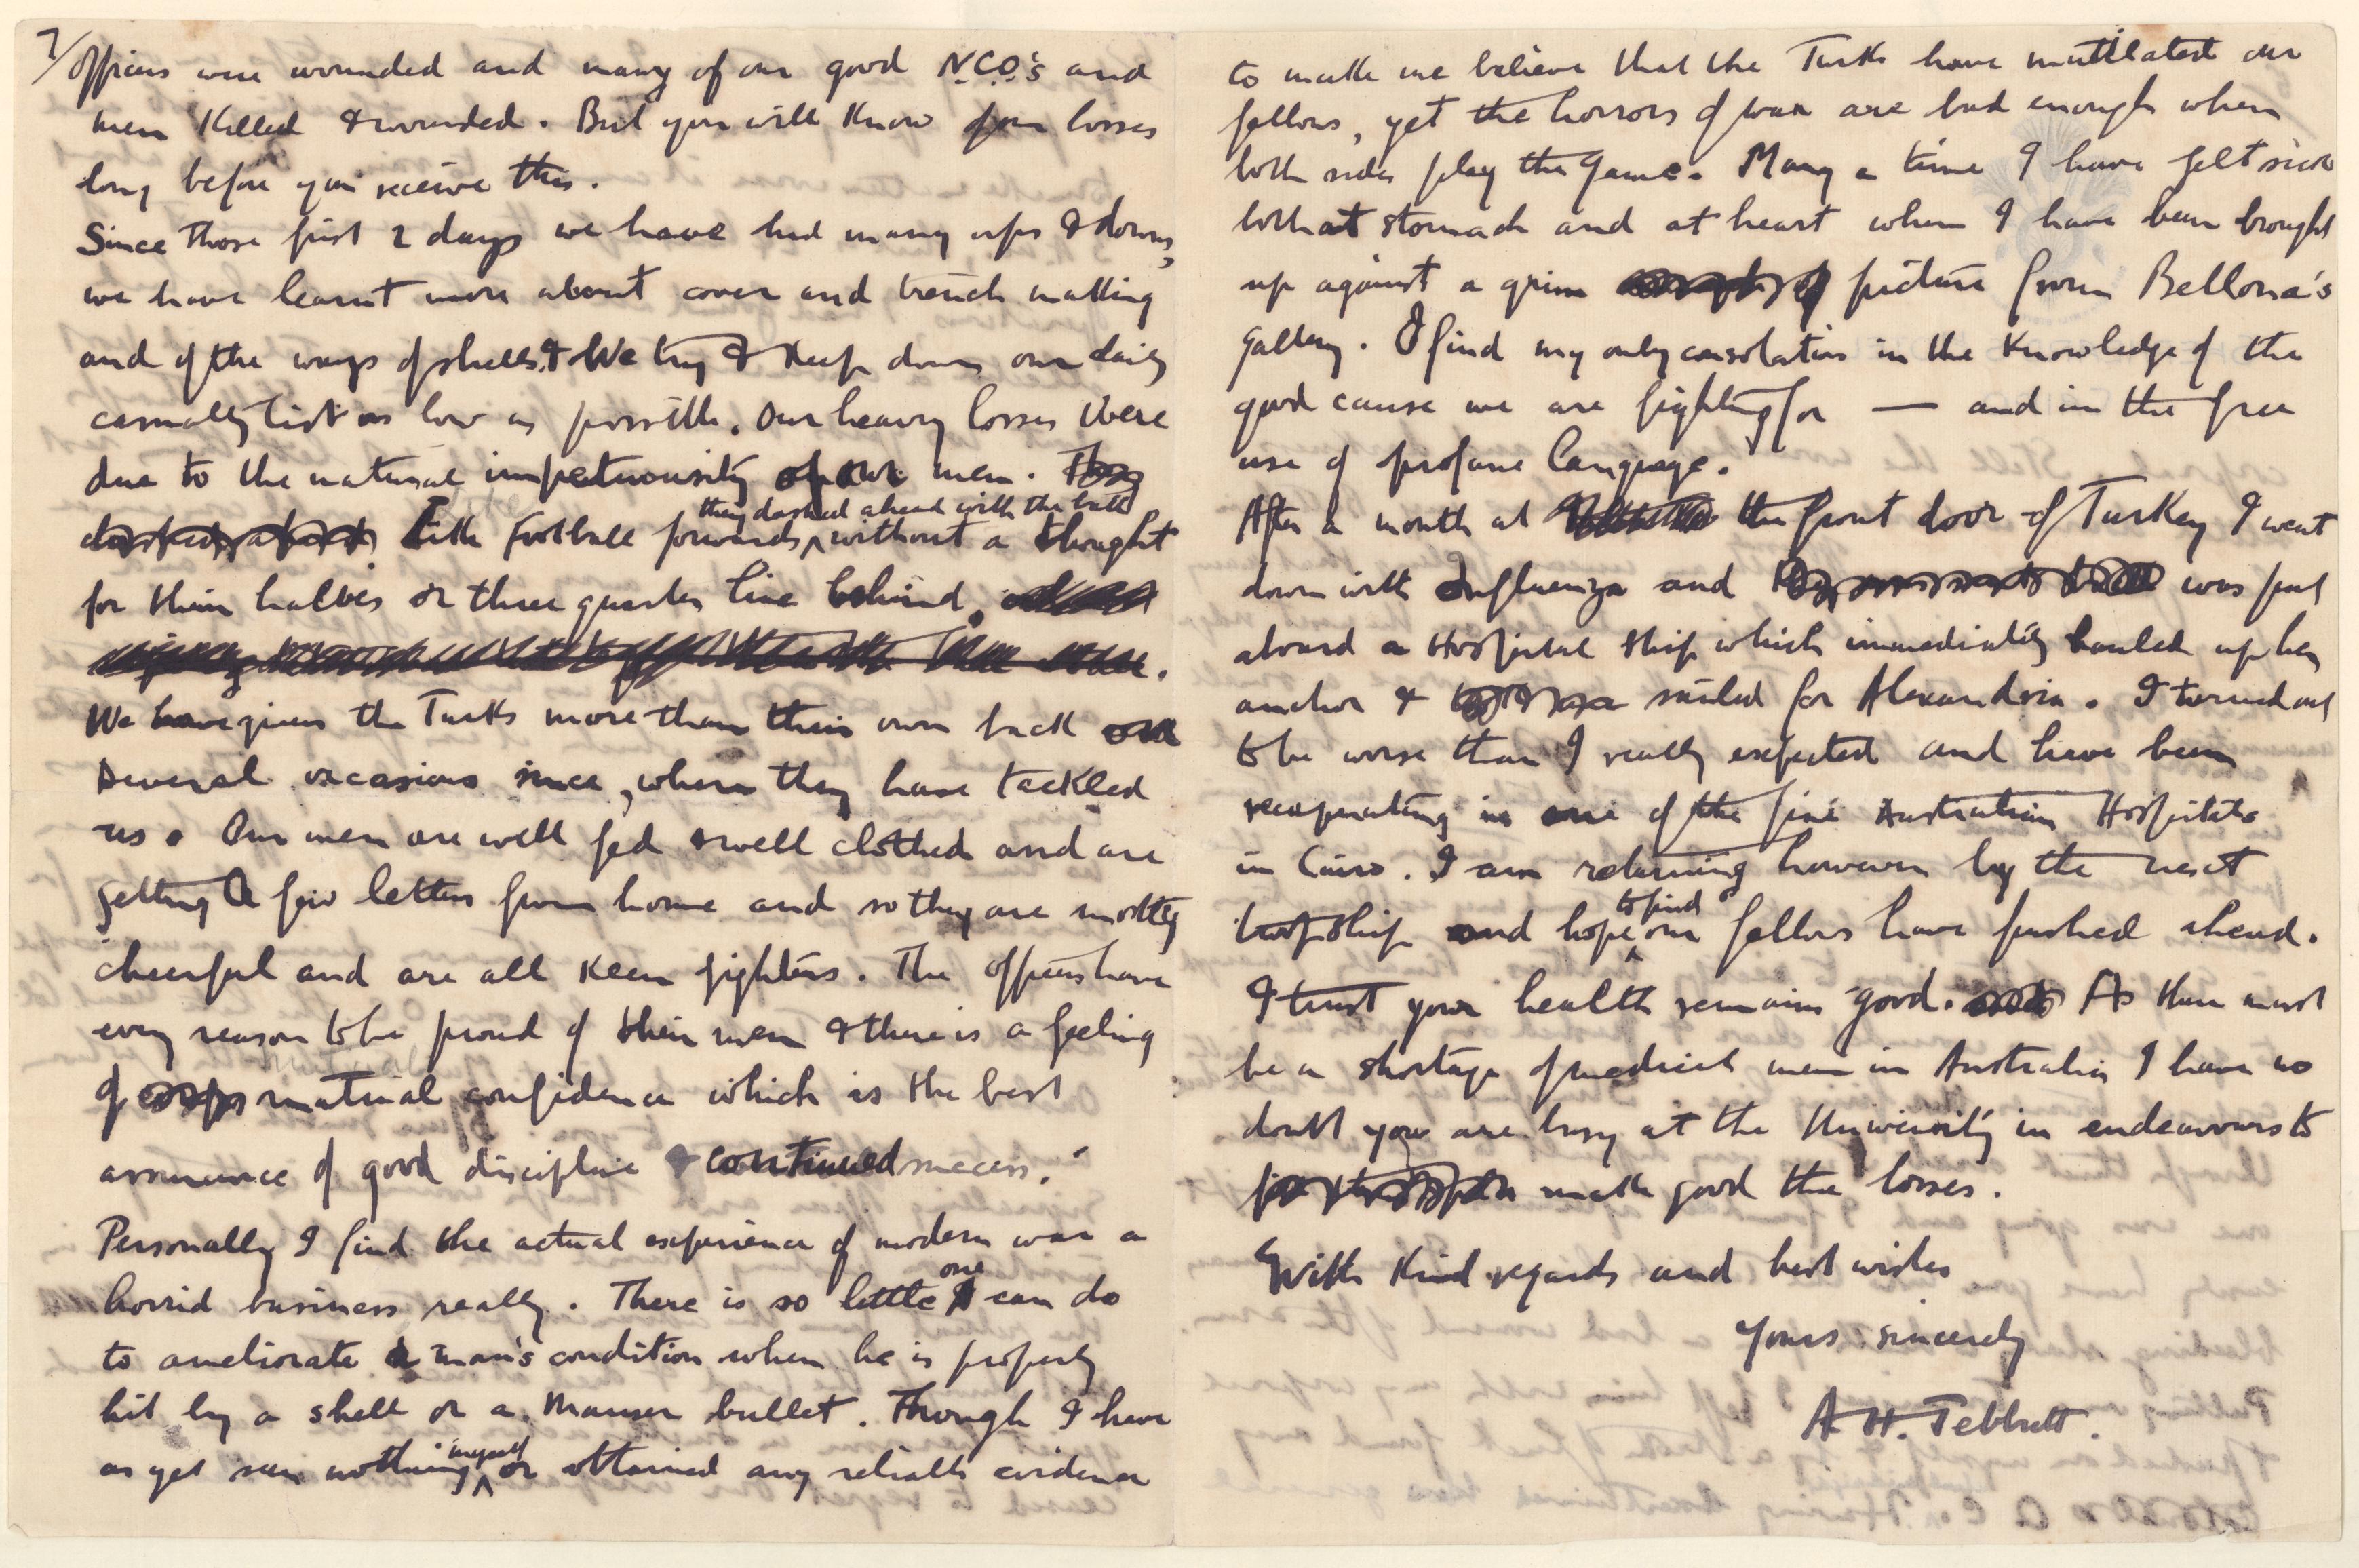 7/ officers were wounded and many of our good N.C.O.'s and
men killed & wounded. But you will know our losses
long before you receive this.
Since those first 2 days we have had many ups & downs,
we have learnt more about cover and trench making
and of the ways of shells & We try & keep down our daily
casualty list as low as possible. Our heavy losses were
due to the natural impetuosity of our men. They
they dashed ahead with the ball
Like football forwards, without a thought
for their halves or three quarter line behind.
We have given the Turks more than their own back on
several occasions since, when they have tackled
us. Our men are well fed & well clothed and are
getting a few letters from home and so they are mostly
cheerful and are all keen fighters. The officers have
every reason to be proud of their men & there is a feeling
of mutual confidence which is the best
assurance of good discipline & continued success.
Personally I find the actual experience of modern war a
horrid business really. There is so little one can do
to ameliorate a man's condition when he is properly
hit by a shell or a Mauser bullet. Though I have
as yet seen nothing myself or obtained any reliable evidence
to make me believe that the Turks have mutilated our
fellows, yet the horrors of war are bad enough when
both sides play the game. Many a time I have felt sick
both at stomach and at heart when I have been brought
up against a grim picture from Bellona's
gallery. I find my only consolation in the knowledge of the
good cause we are fighting for — and in the free
use of profane language.
After a month at the front door of Turkey I went
down with Influenza and was put
aboard a Hospital ship which immediately hauled up her
anchor & sailed for Alexandria. I turned out
to be worse than I really expected and have been
recuperating in one of the fine Australian Hospitals
in Cairo. I am returning however by the next
troopship and hope to find our fellows have pushed ahead.
I trust your health remains good. As there must
be a shortage of medical men in Australia I have no
doubt you are busy at the University in endeavours to
make good the losses.
With kind regards and best wishes
Yours sincerely
A. H. Tebbutt.